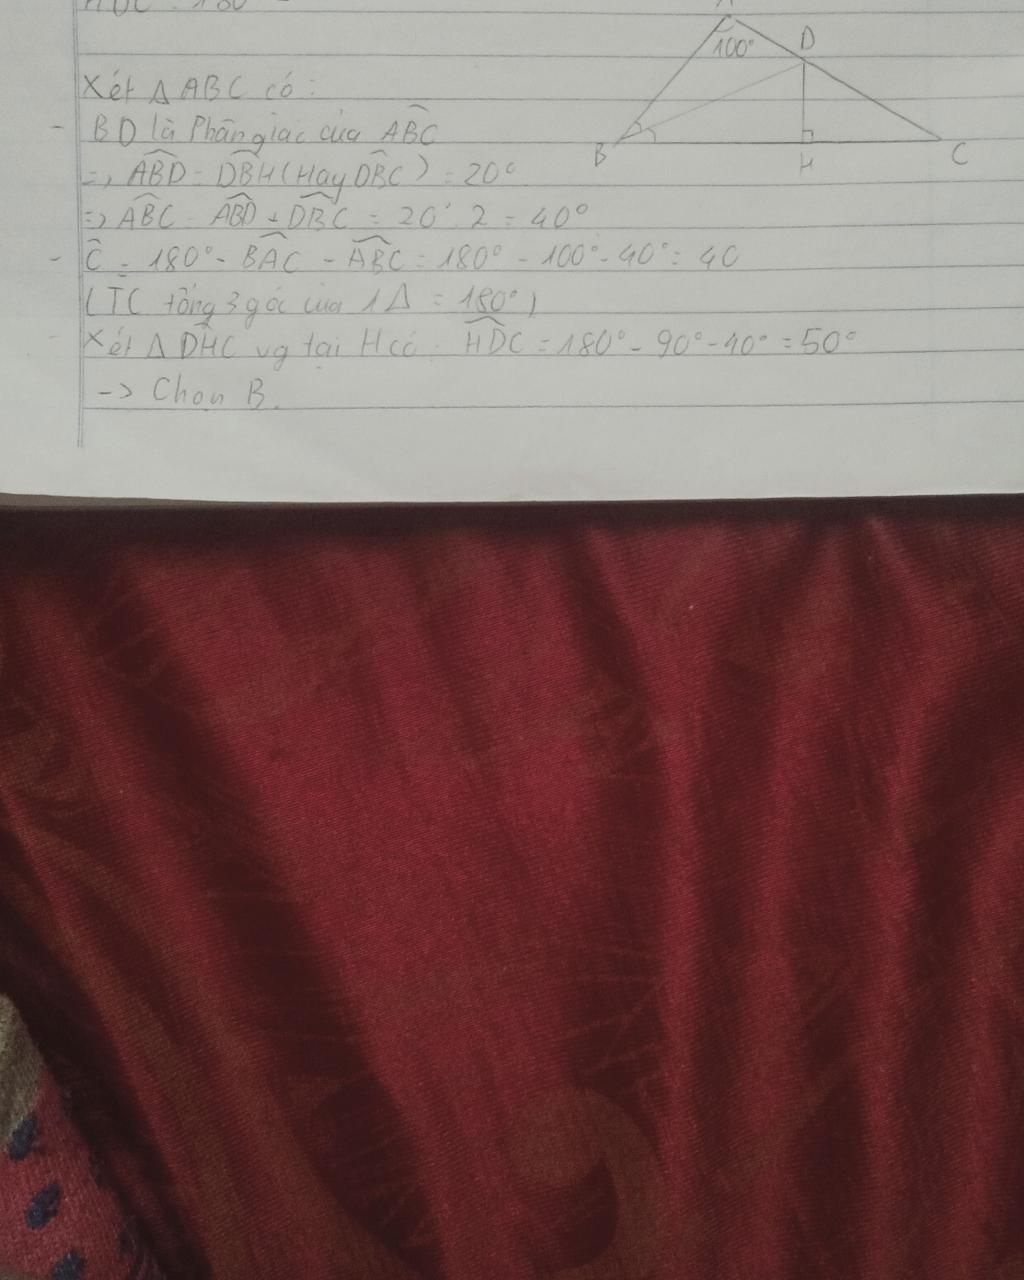 HDC = 180
A
100°
D
B
H
C
Xét Δ ABC có:
- BD là Phân giác của ABC
=> ABD = DBH (Hay DBC) = 20°
=> ABC = ABD + DBC = 20°. 2 = 40°
- C = 180° - BAC - ABC = 180° - 100° - 40° = 40
(TC tổng 3 góc của 1 Δ = 180°)
- Xét Δ DHC vg tại H có: HDC = 180° - 90° - 40° = 50°
-> Chọn B.